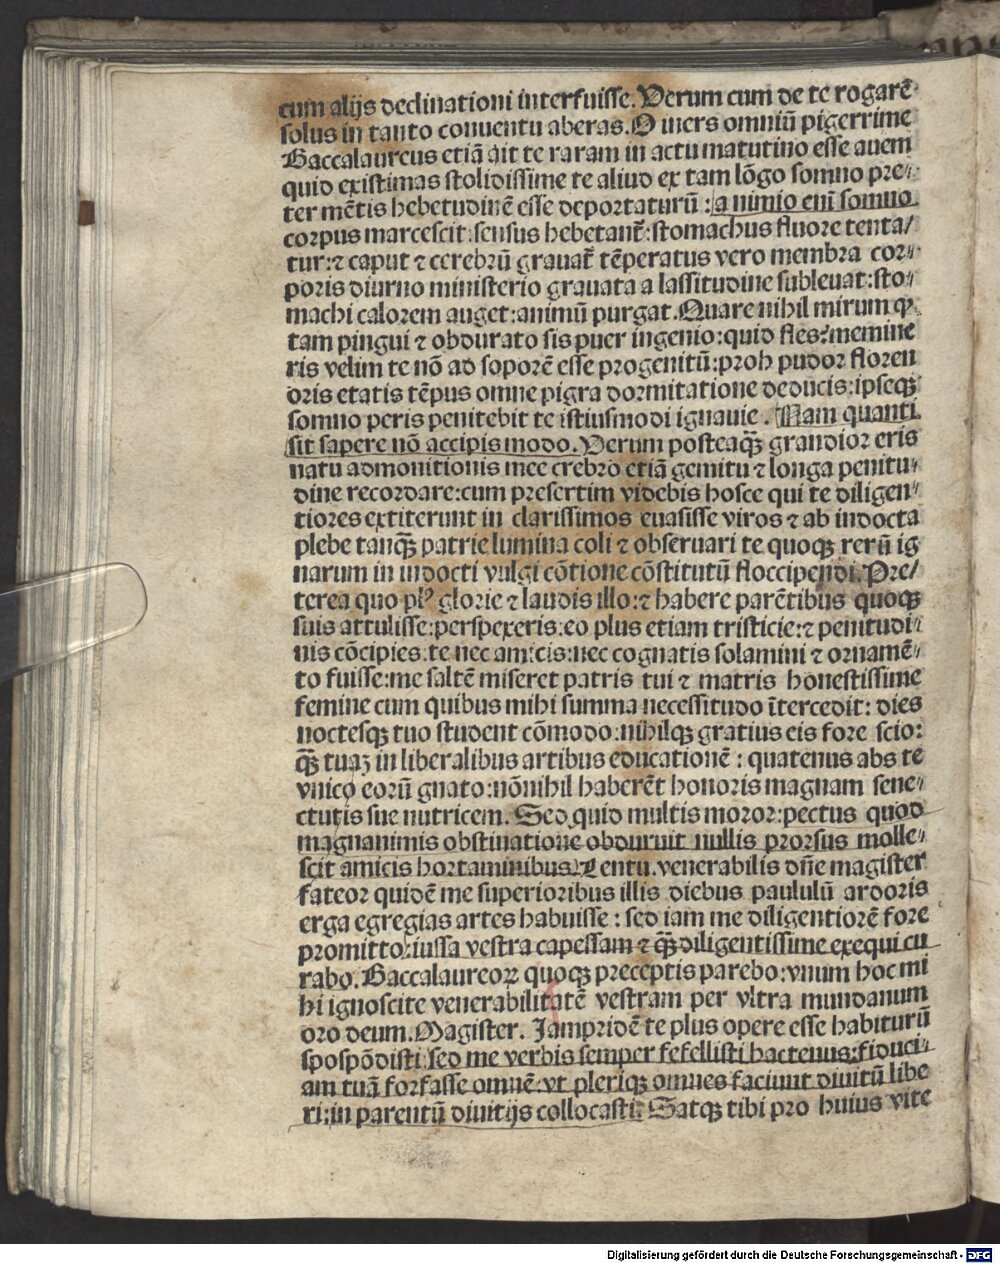 cum alijs declinationi interfuisse. Verum cum de te rogarē
solus in tanto conuentu aberas. O iners omniū pigerrime
Baccalaureus etiā ait te raram in actu matutino esse auem
quid existimas stolidissime te aliud ex tam lōgo somno pre⸗
ter mētis hebetudinē esse deportaturū : a nimio eni somno
corpus marcescit: sensus hebetant᷑: stomachus fluore tenta/
tur: ⁊ caput ⁊ cerebrū grauat᷑ tēperatus vero membra cor⸗
poris diurno ministerio grauata a lassitudine subleuat: sto⸗
machi calorem auget: animū purgat. Quare nihil mirum ꝙ
tam pingui ⁊ obdurato sis puer ingenio: quid fles? memine
ris velim te nō ad soporē esse progenitū: proh pudor floren
oris etatis tēpus omne pigra dormitatione deducis: ipseqꝫ
somno peris penitebit te istiusmodi ignauie . Nam quanti
sit sapere nō accipis modo. Verum posteaqꝫ̄ grandior eris
natu admonitionis mee crebro etiā gemitu ⁊ longa penitu⸗
dine recordare: cum presertim videbis hosce qui te diligen⸗
tiores extiterunt in clarissimos euasisse viros ⁊ ab indocta
plebe tanqꝫ̄ patrie lumina coli ⁊ obseruari te quoqꝫ rerū ig
narum in indocti vulgi cōtione cōstitutū floccipendi. Pre/
terea quo plꝰ glorie ⁊ laudis illo: ⁊ habere parētibus quoqꝫ
suis attulisse: perspexeris: eo plus etiam tristicie: ⁊ penitudi⸗
nis cōcipies: te nec amicis: nec cognatis solamini ⁊ ornamē⸗
to fuisse: me saltē miseret patris tui ⁊ matris honestissime
femine cum quibus mihi summa necessitudo ītercedit: dies
noctesqꝫ tuo student cōmodo: nihilqꝫ gratius eis fore scio:
qꝫ̄ tuaꝫ in liberalibus artibus educationē : quatenus abs te
vnico eorū gnato: nōnihil haberēt honoris magnam sene⸗
ctutis sue nutricem. Sed quid multis moror: pectus quod
magnanimis obstinatione obduruit nullis prorsus molle⸗
scit amicis hortaminibus. Lentu. venerabilis dn̄e magister
fateor quidē me superioribus illis diebus paululū ardoris
erga egregias artes habuisse : sed iam me diligentiorē fore
promitto: iussa vestra capessam ⁊ qꝫ̄ diligentissime exequi cu
rabo. Baccalaureoꝝ quoqꝫ preceptis parebo: vnum hoc mi
hi ignoscite venerabilitatē vestram per vltra mundanum
oro deum. Magister. Jampridē te plus opere esse habiturū
spospōdisti sed me verbis semper fefellisti hactenus: fiduci⸗
am tuā forfasse omnē: vt pleriqꝫ omnes faciunt diuitū libe
ri: in parentū diuitijs collocasti. Satqꝫ tibi pro huius vite
Digitalisierung gefördert durch die Deutsche Forschungsgemeinschaft - DFG